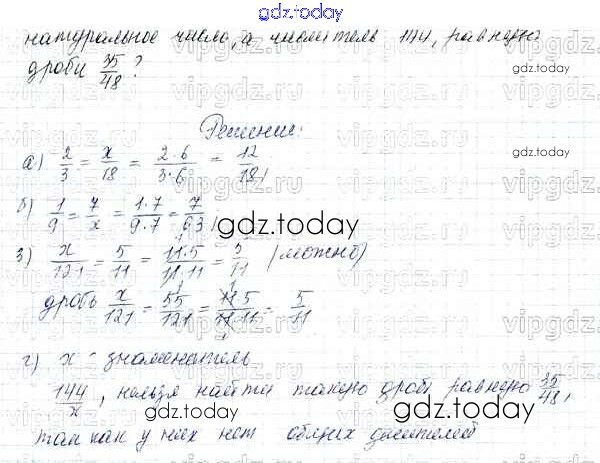 gdz.today
натуральное число, а числитель 144, равную
дроби 35/48?
gdz.today
Решение:
а) 2/3 = x/18 = 2·6/3·6 = 12/18,
б) 1/9 = 7/x = 1·7/9·7 = 7/63,
gdz.today
3) x/121 = 5/11 = 11·5/11·11 = 5/11 (можно)
дробь x/121 = 55/121 = 11·5/11·11 = 5/11
gdz.today
г) x - знаменатель
144/x, нельзя найти такую дробь равную 35/48,
gdz.today
так как у них нет общих делителей
vipgdz.ru